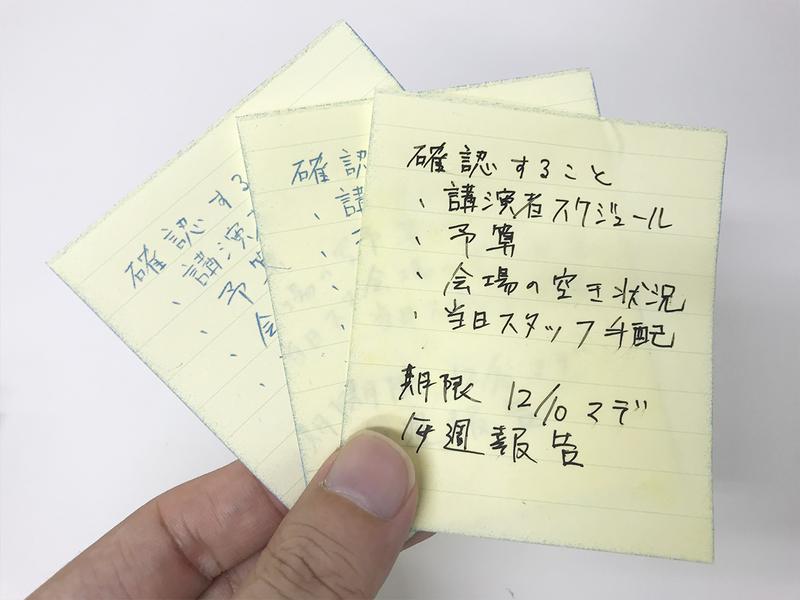 確認する
・講演
・予算
・会
確認
・講
確認すること
・講演者スケジュール
・予算
・会場の空き状況
・当日スタッフ手配
期限 12/10マデ
毎週報告